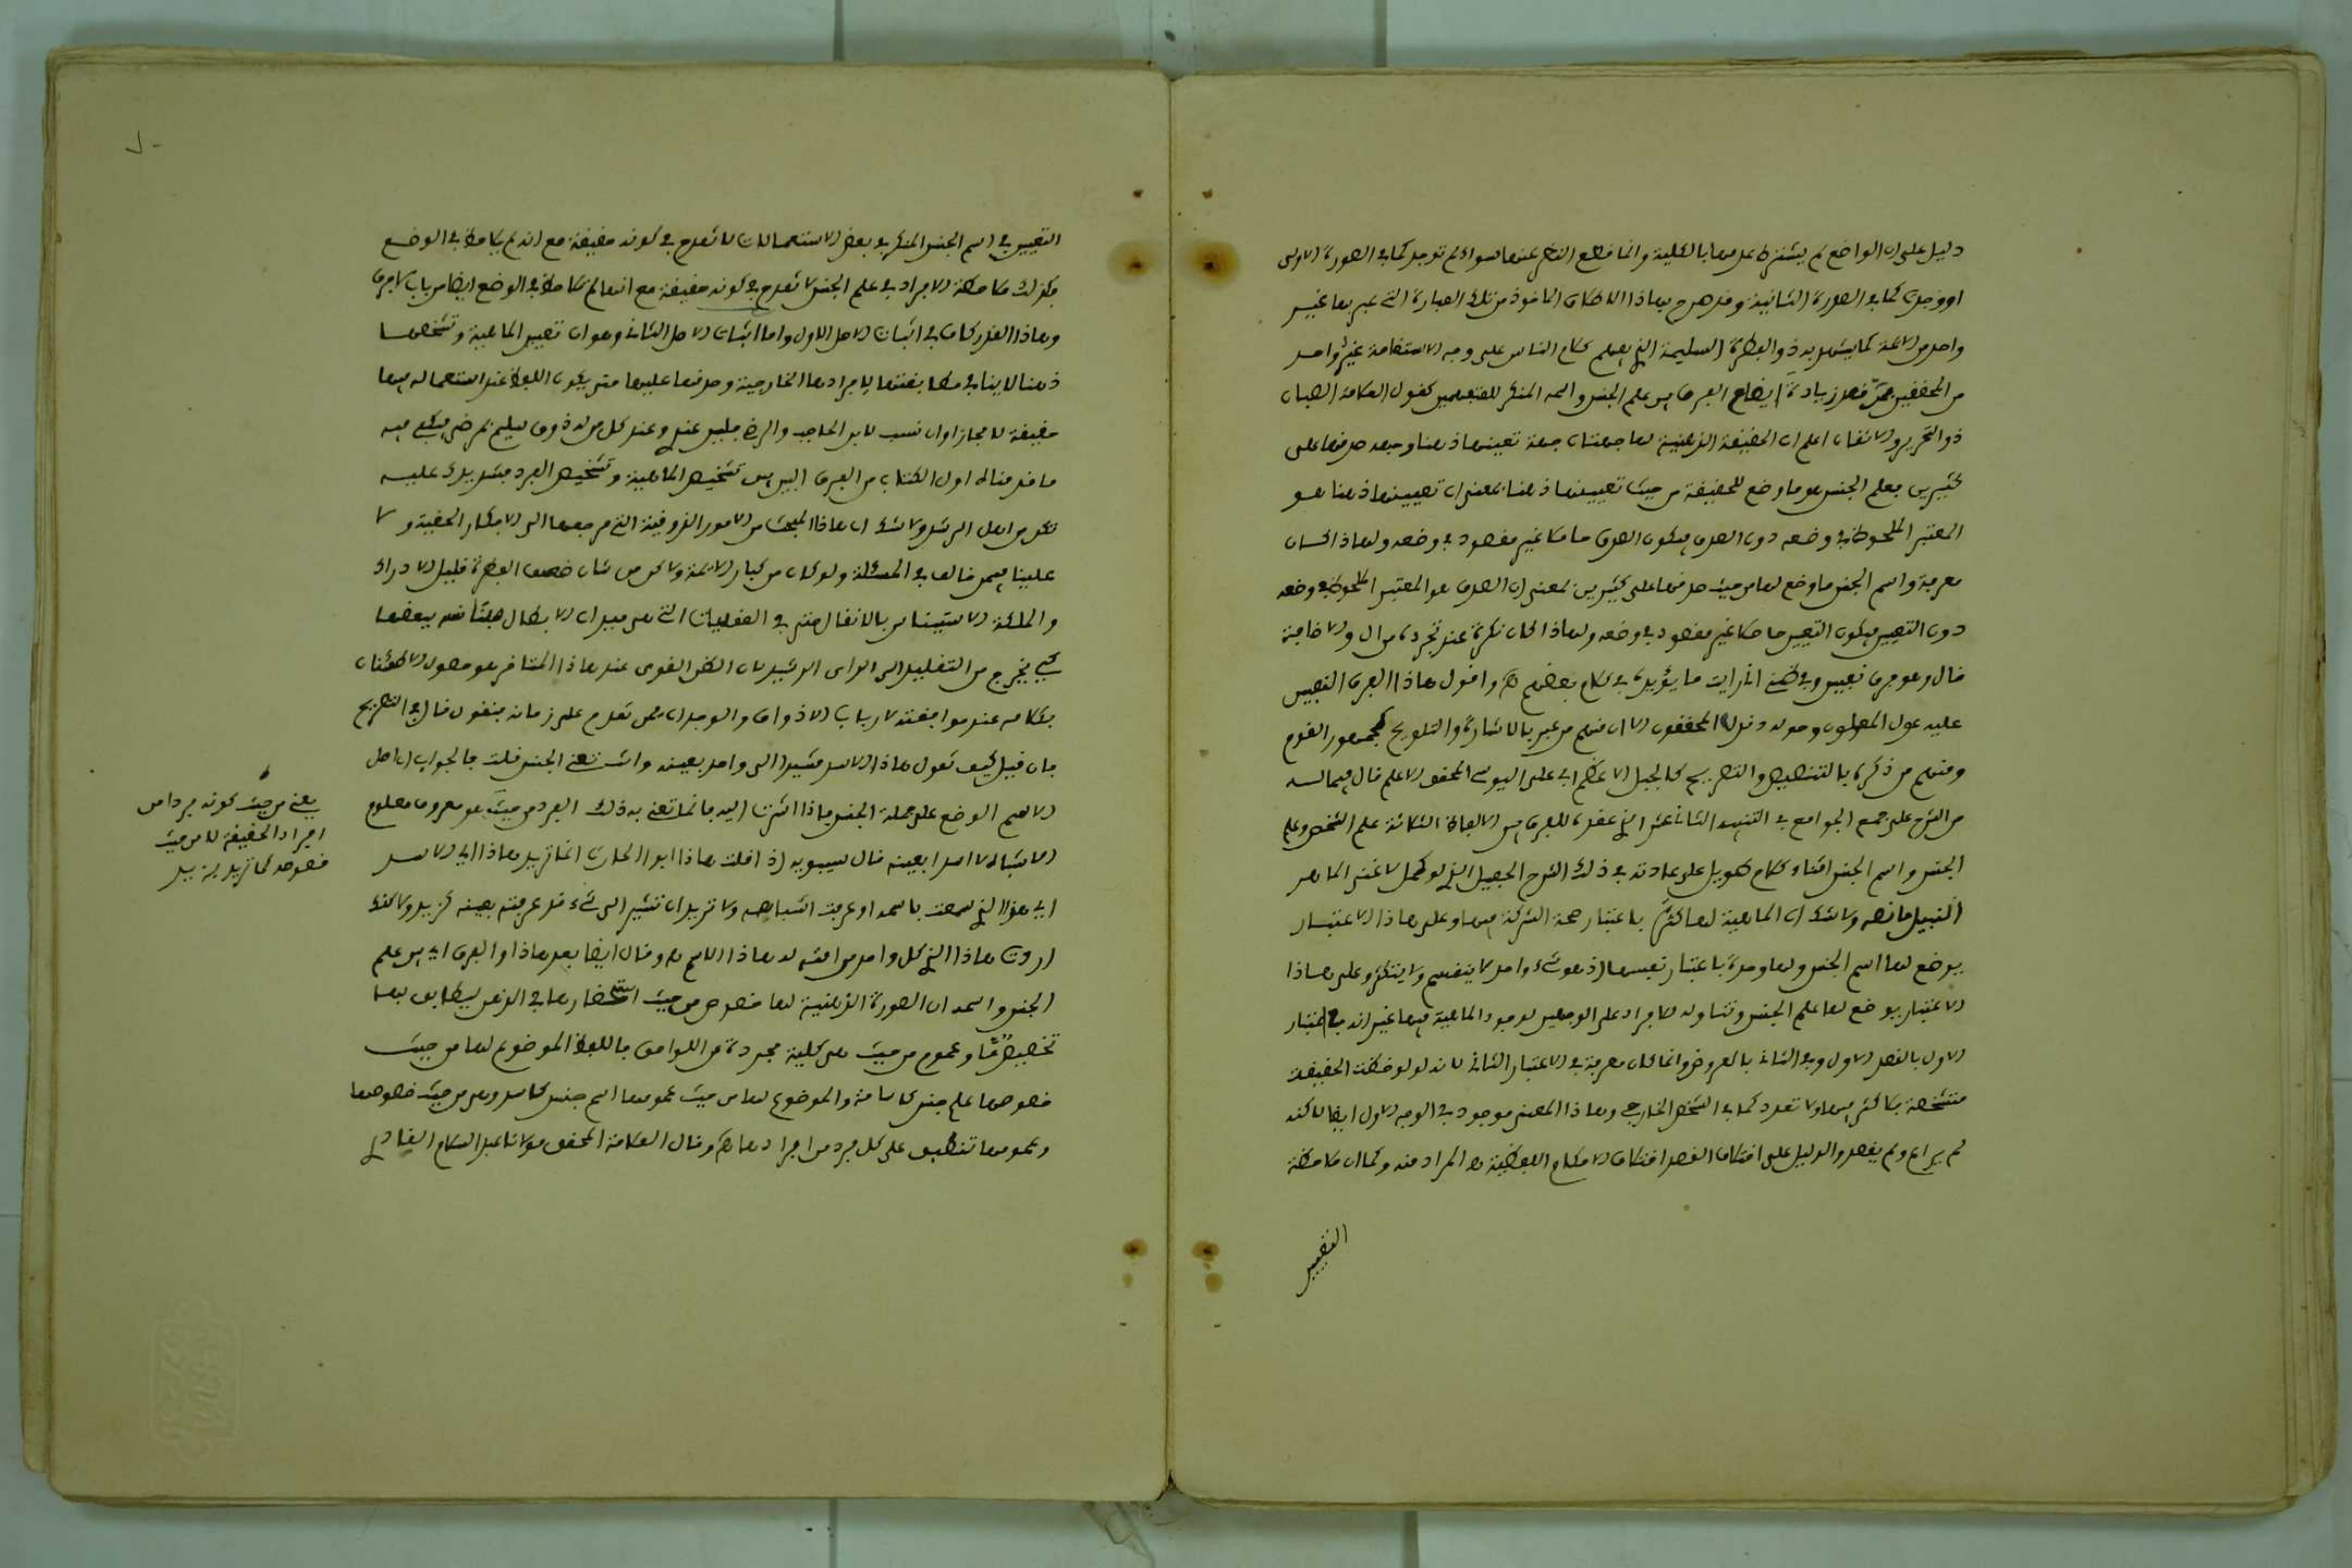 دليل على ان الواضع لم يشترط عدمها بالكلية وانما قطع النظر عنها سواء لم توجد كما في الصورة الاولى
او وجدت كما في الصورة الثانية وقد صرح بهاذا المأخوذ من تلك العبارة التي عبر بها غير
واحد من الائمة كما يشهد به ذو الفطرة السليمة الذي يفهم كلام الناس على وجه الاستقامة غير واحد
من المحققين ممن قصد زيادة ايضاح الفرق بين علم الجنس واسمه المنكر للمتعلمين كقول العلامة الصبان
ذو التحرير والاتقان اعلم ان الحقيقة الذهنية لها جهتان جهة تعينها ذهنا وجهة صدقها على
كثيرين فعلم الجنس هو ما وضع للحقيقة من حيث تعيينها ذهنا بمعنى ان تعيينها ذهنا هو
المعتبر الملحوظ في وضعه دون الصدق فيكون الصدق حاصلا غير مقصود في وضعه ولهاذا كان
معرفة واسم الجنس ما وضع لها من حيث صدقها على كثيرين بمعنى ان الصدق هو المعتبر الملحوظ في وضعه
دون التعيين فيكون التعيين حاصلا غير مقصود في وضعه ولهاذا كان نكرة عند تجرده من ال والاضافة
قال وهو فرق نفيس وفي ظني اني رايت ما يؤيده في كلام بعضهم اه واقول هاذا الفرق النفيس
عليه عول المحققون الا ان منهم من عبر بالاشارة والتلويح كجمهور القوم
ومنهم من ذكره بالتنصيص والتصريح كالجبل الاعظم ابي علي اليوسي المحقق الاعلم قال فيما له
من الشرح على جمع الجوامع في التنبيه الثاني عشر الذي عقده للفرق بين الالفاظ الثلاثة علم الشخص وعلم
الجنس واسم الجنس اثناء كلام طويل على عادته في ذلك الشرح الجميل الذي لو كمل لاغنى الماهر
النبيل ما نصه ولا شك ان الماهية لها كثرة باعتبار صحة الشركة فيها وعلى هاذا الاعتبار
يوضع لها اسم الجنس ولها وحدة باعتبار نفسها اذ هو شيء واحد لا ينقسم ولا يتكثر وعلى هاذا
الاعتبار يوضع لها علم الجنس وتناوله للافراد على الوجهين لوجود الماهية فيها غير انه باعتبار
الاول بالقصد الاول وفي الثاني بالعروض وانما كان معرفة في الاعتبار الثاني لانه لو لوحظت الحقيقة
متشخصة بلا كثر فيها ولا تعدد كما في الشخص الخارجي وهاذا المعنى موجود في الوجه الاول ايضا لاكنه
لم يراع ولم يقصد والدليل على اختلاف القصد اختلاف الاحكام اللفظية اه المراد منه وكما ان ملاحظة
التعيين
التعيين في اسم الجنس المنكر في بعض الاستعمالات لا تقدح في كونه حقيقة مع انه لم يلاحظ في الوضع
فكذلك ملاحظة الافراد في علم الجنس لا تقدح في كونه حقيقة مع انها لم تلاحظ في الوضع ايضا من باب لا فرق
وهاذا القدر كاف في اثبات الاصل الاول واما اثبات الاصل الثاني وهو ان تعيين الماهية وتشخصها
ذهنا لا ينافي مطابقتها لافرادها الخارجية وصدقها عليها حتى يكون اللفظ عند استعماله فيها
حقيقة لا مجازا وان نسب لابن الحاجب والرضي فليس عند وعند كل من له ذوق سليم بمرضي فيكفي فيه
ما قدمناه اول الكتاب من الفرق البين بين تشخيص الماهية وتشخيص الفرد فشد يدك عليه
تكن من اهل الرشد ولا شك ان هاذا المبحث من الامور الذوقية التي مرجعها الى الافكار الحقية ولا
علينا فيمن خالف في المسئلة ولو كان من كبار الائمة ولاكن من شان ضعيف الفطرة قليل الادراك
والملكة الاستيناس بالانقال حتى في العقليات التي هي ميدان الابطال فلنأنسه ببعضها
كي يخرج من التقليد الى الراي الرشيد لان الظن القوي عند هاذا المتاخر هو حصول الاطمئنان
بكلامه عند موافقته لارباب الاذواق والوجدان ممن تقدم على زمانه فنقول قال في التصريح
فان قيل كيف تقول هاذا الاسد مشيرا الى واحد بعينه وانت تعني الجنس قلت فالجواب ان اصل
الاسم الوضع على جملة الجنس فاذا اشرت اليه فانما تعني به ذلك الفرد من حيث هو معروف معلوم
الاشباه لا اسدا بعينه قال سيبويه اذا قلت هاذا ابو الحارث انما تريد هاذا اي الاسد
اي هاذا الذي سمعت باسمه او عرفت اشباهه ولا تريد ان تشير الى شيء قد عرفته بعينه كزيد ولاكنك
اردت هاذا الذي كل واحد من امته له هاذا الاسم اه وقال ايضا بعد هاذا والفرق اي بين علم
الجنس واسمه ان الصورة الذهنية لها خصوص من حيث استحضارها في الذهن
تخصيص ما وعموم من حيث هي كلية مجردة عن اللواحق فاللفظ الموضوع لها من حيث
خصوصها علم جنس كاسامة والموضوع لها من حيث عمومها اسم جنس كاسد وهي من حيث خصوصها
وعمومها تنطبق على كل فرد من افرادها اه وقال العلامة المحقق مولانا عبد السلام القادري
يعني من حيث كونه فردا من
افراد الحقيقة لا من حيث
خصوصه كما تريد بزيد